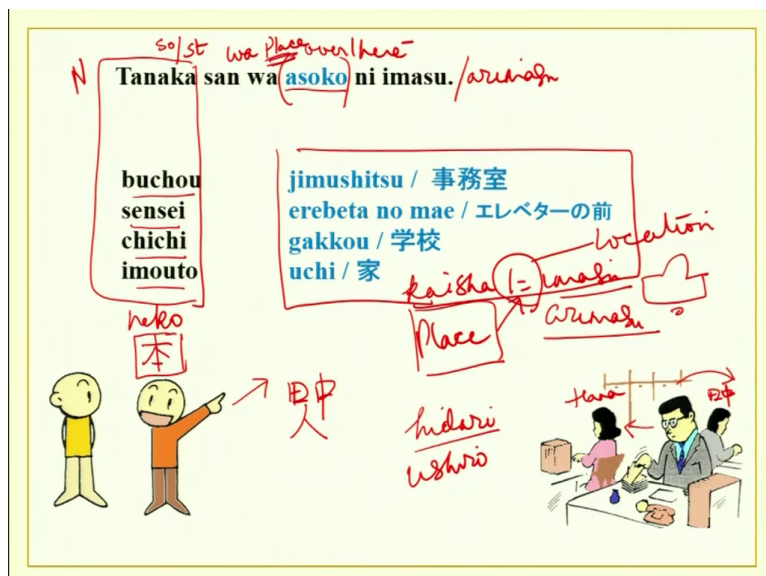 so/st wa place over there
N Tanaka san wa asoko ni imasu. /arimasu
buchou
sensei
chichi
imouto
jimushitsu / 事務室
erebeta no mae / エレベターの前
gakkou / 学校
uchi / 家
Location
kaisha に imasu
arimasu
Place
neko
本
田中
人
hidari
ushiro
Hana
田中